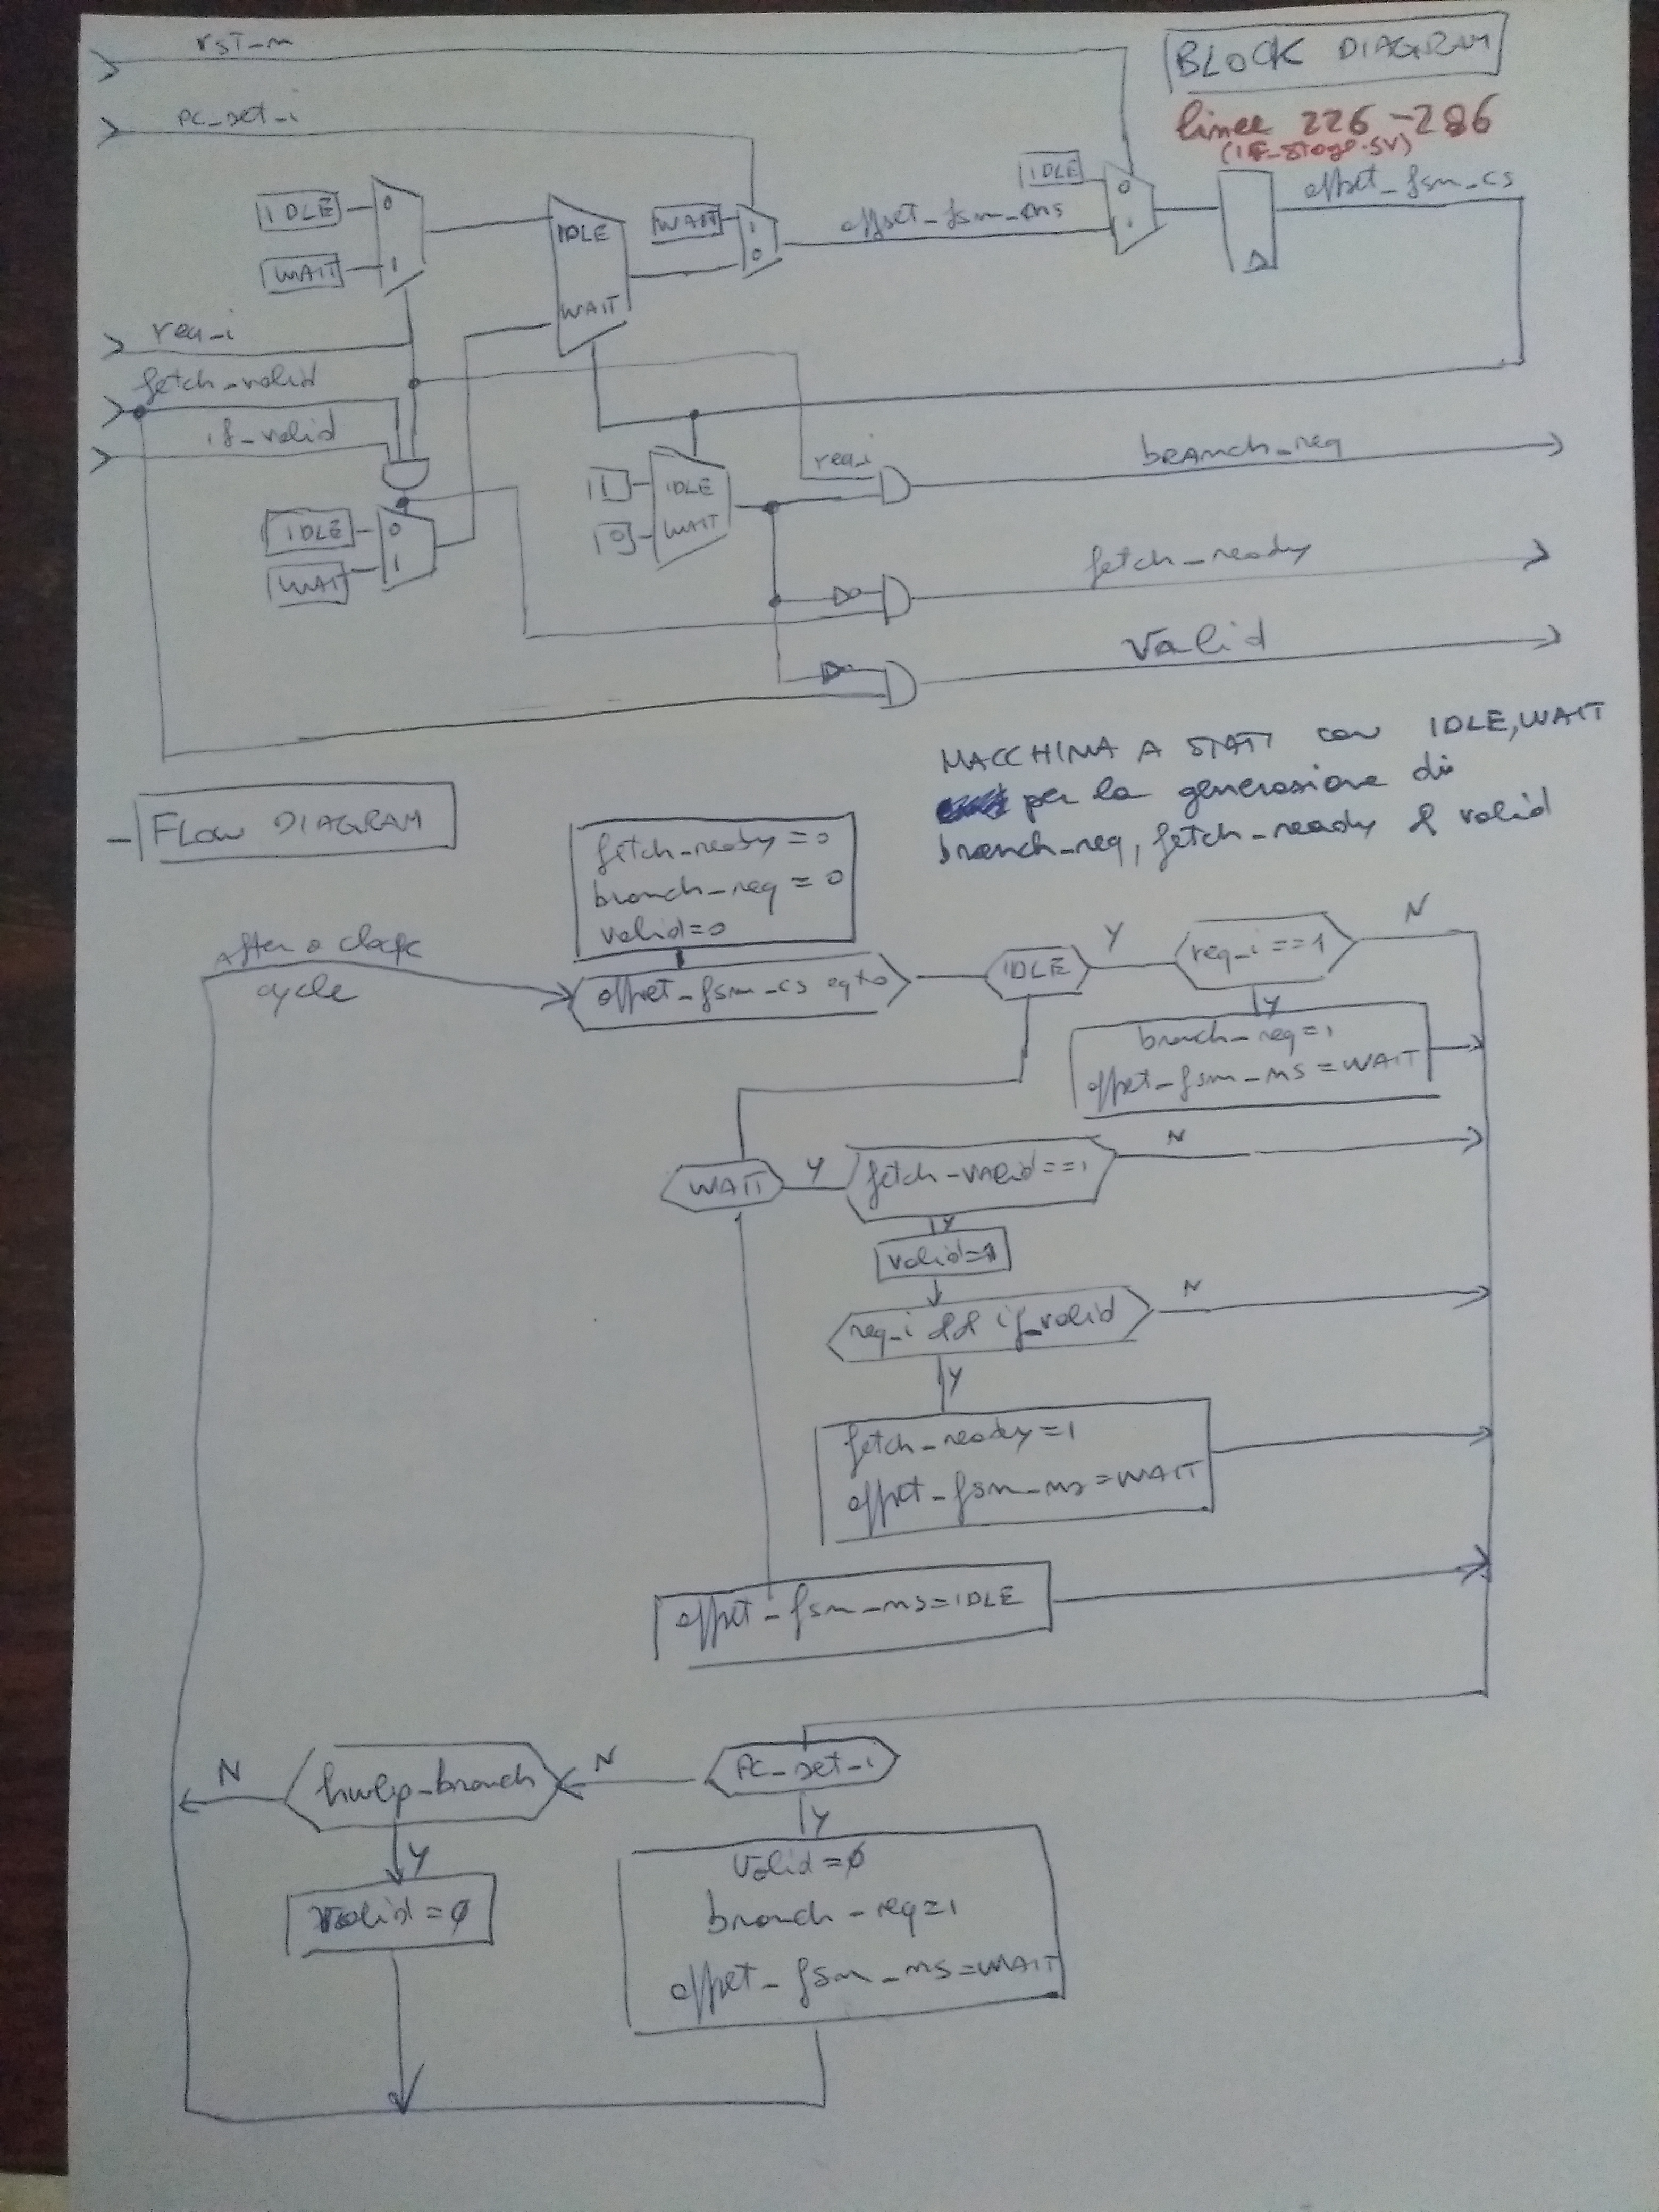 rst_n
BLOCK DIAGRAM
linee 226-286
(IF_stage.sv)
PC_set_i
IDLE
0
WAIT
1
IDLE
WAIT
WAIT
1
0
offset_fsm_ns
IDLE
0
1
offset_fsm_cs
req_i
fetch_valid
if_valid
IDLE
0
WAIT
1
1
IDLE
0
WAIT
req_i
branch_req
fetch_ready
valid
MACCHINA A STATI con IDLE, WAIT
per la generazione di
branch_req, fetch_ready & valid
- FLOW DIAGRAM
fetch_ready = 0
branch_req = 0
valid=0
After a clock
cycle
offset_fsm_cs eq to
IDLE
Y
req_i ==1
N
Y
branch_req=1
offset_fsm_ns = WAIT
WAIT
Y
fetch_valid==1
N
Y
valid=1
req_i && if_valid
N
Y
fetch_ready=1
offset_fsm_ns=WAIT
offset_fsm_ns=IDLE
PC_set_i
N
hwlp_branch
N
Y
valid=0
Y
valid=0
branch_req=1
offset_fsm_ns=WAIT